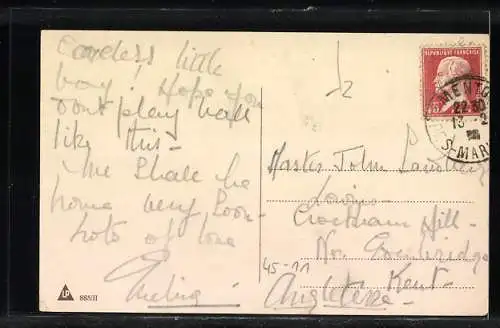 Careless little
boy! Hope you
don't play ball
like this -
We shall be
home very soon
Lots of love
RÉPUBLIQUE FRANÇAISE
MENTO
22 30
13 - 2
S-MAR
Master John
Crockham Hill -
Nr. Edenbridge
Kent -
Angleterre -
45-11
LP
885/II